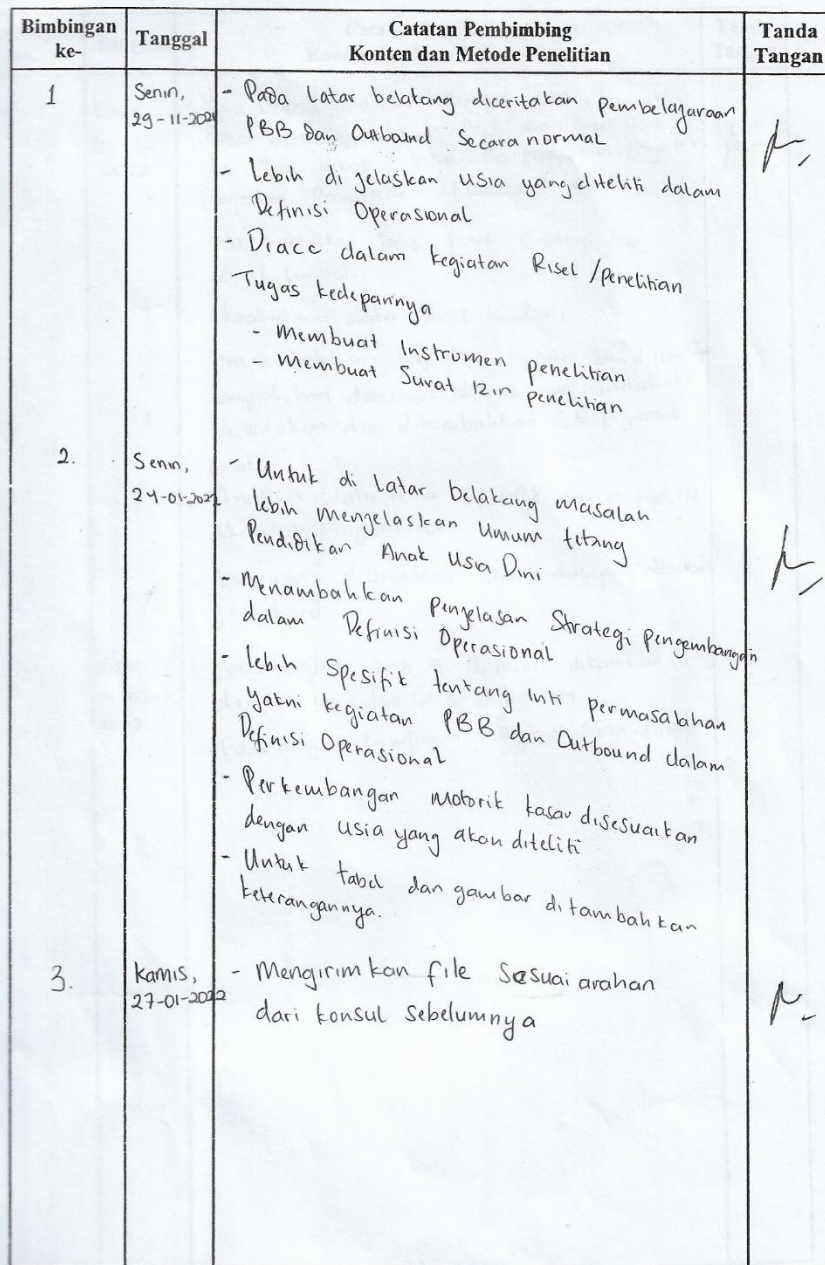 Bimbingan ke- Tanggal Catatan Pembimbing Konten dan Metode Penelitian Tanda Tangan
1 Senin, 29-11-2021
- Pada Latar belakang diceritakan pembelajaraan
PBB dan Outbound Secara normal
- Lebih di jelaskan usia yang diteliti dalam
Definisi Operasional
- Diacc dalam kegiatan Riset/penelitian
Tugas kedepannya
- Membuat Instrumen penelitian
- Membuat Surat Izin penelitian
2. Senin, 24-01-2022
- Untuk di Latar belakang masalah
lebih menjelaskan Umum tetang
Pendidikan Anak Usia Dini
- Menambahkan Penjelasan Strategi pengembangan
dalam Definisi Operasional
- Lebih Spesifik tentang Inti permasalahan
yakni kegiatan PBB dan Outbound dalam
Definisi Operasional
- Perkembangan motorik kasar disesuaikan
dengan usia yang akan diteliti
- Untuk tabel dan gambar ditambahkan
keterangannya.
3. Kamis, 27-01-2022
- Mengirimkan file Sesuai arahan
dari konsul Sebelumnya